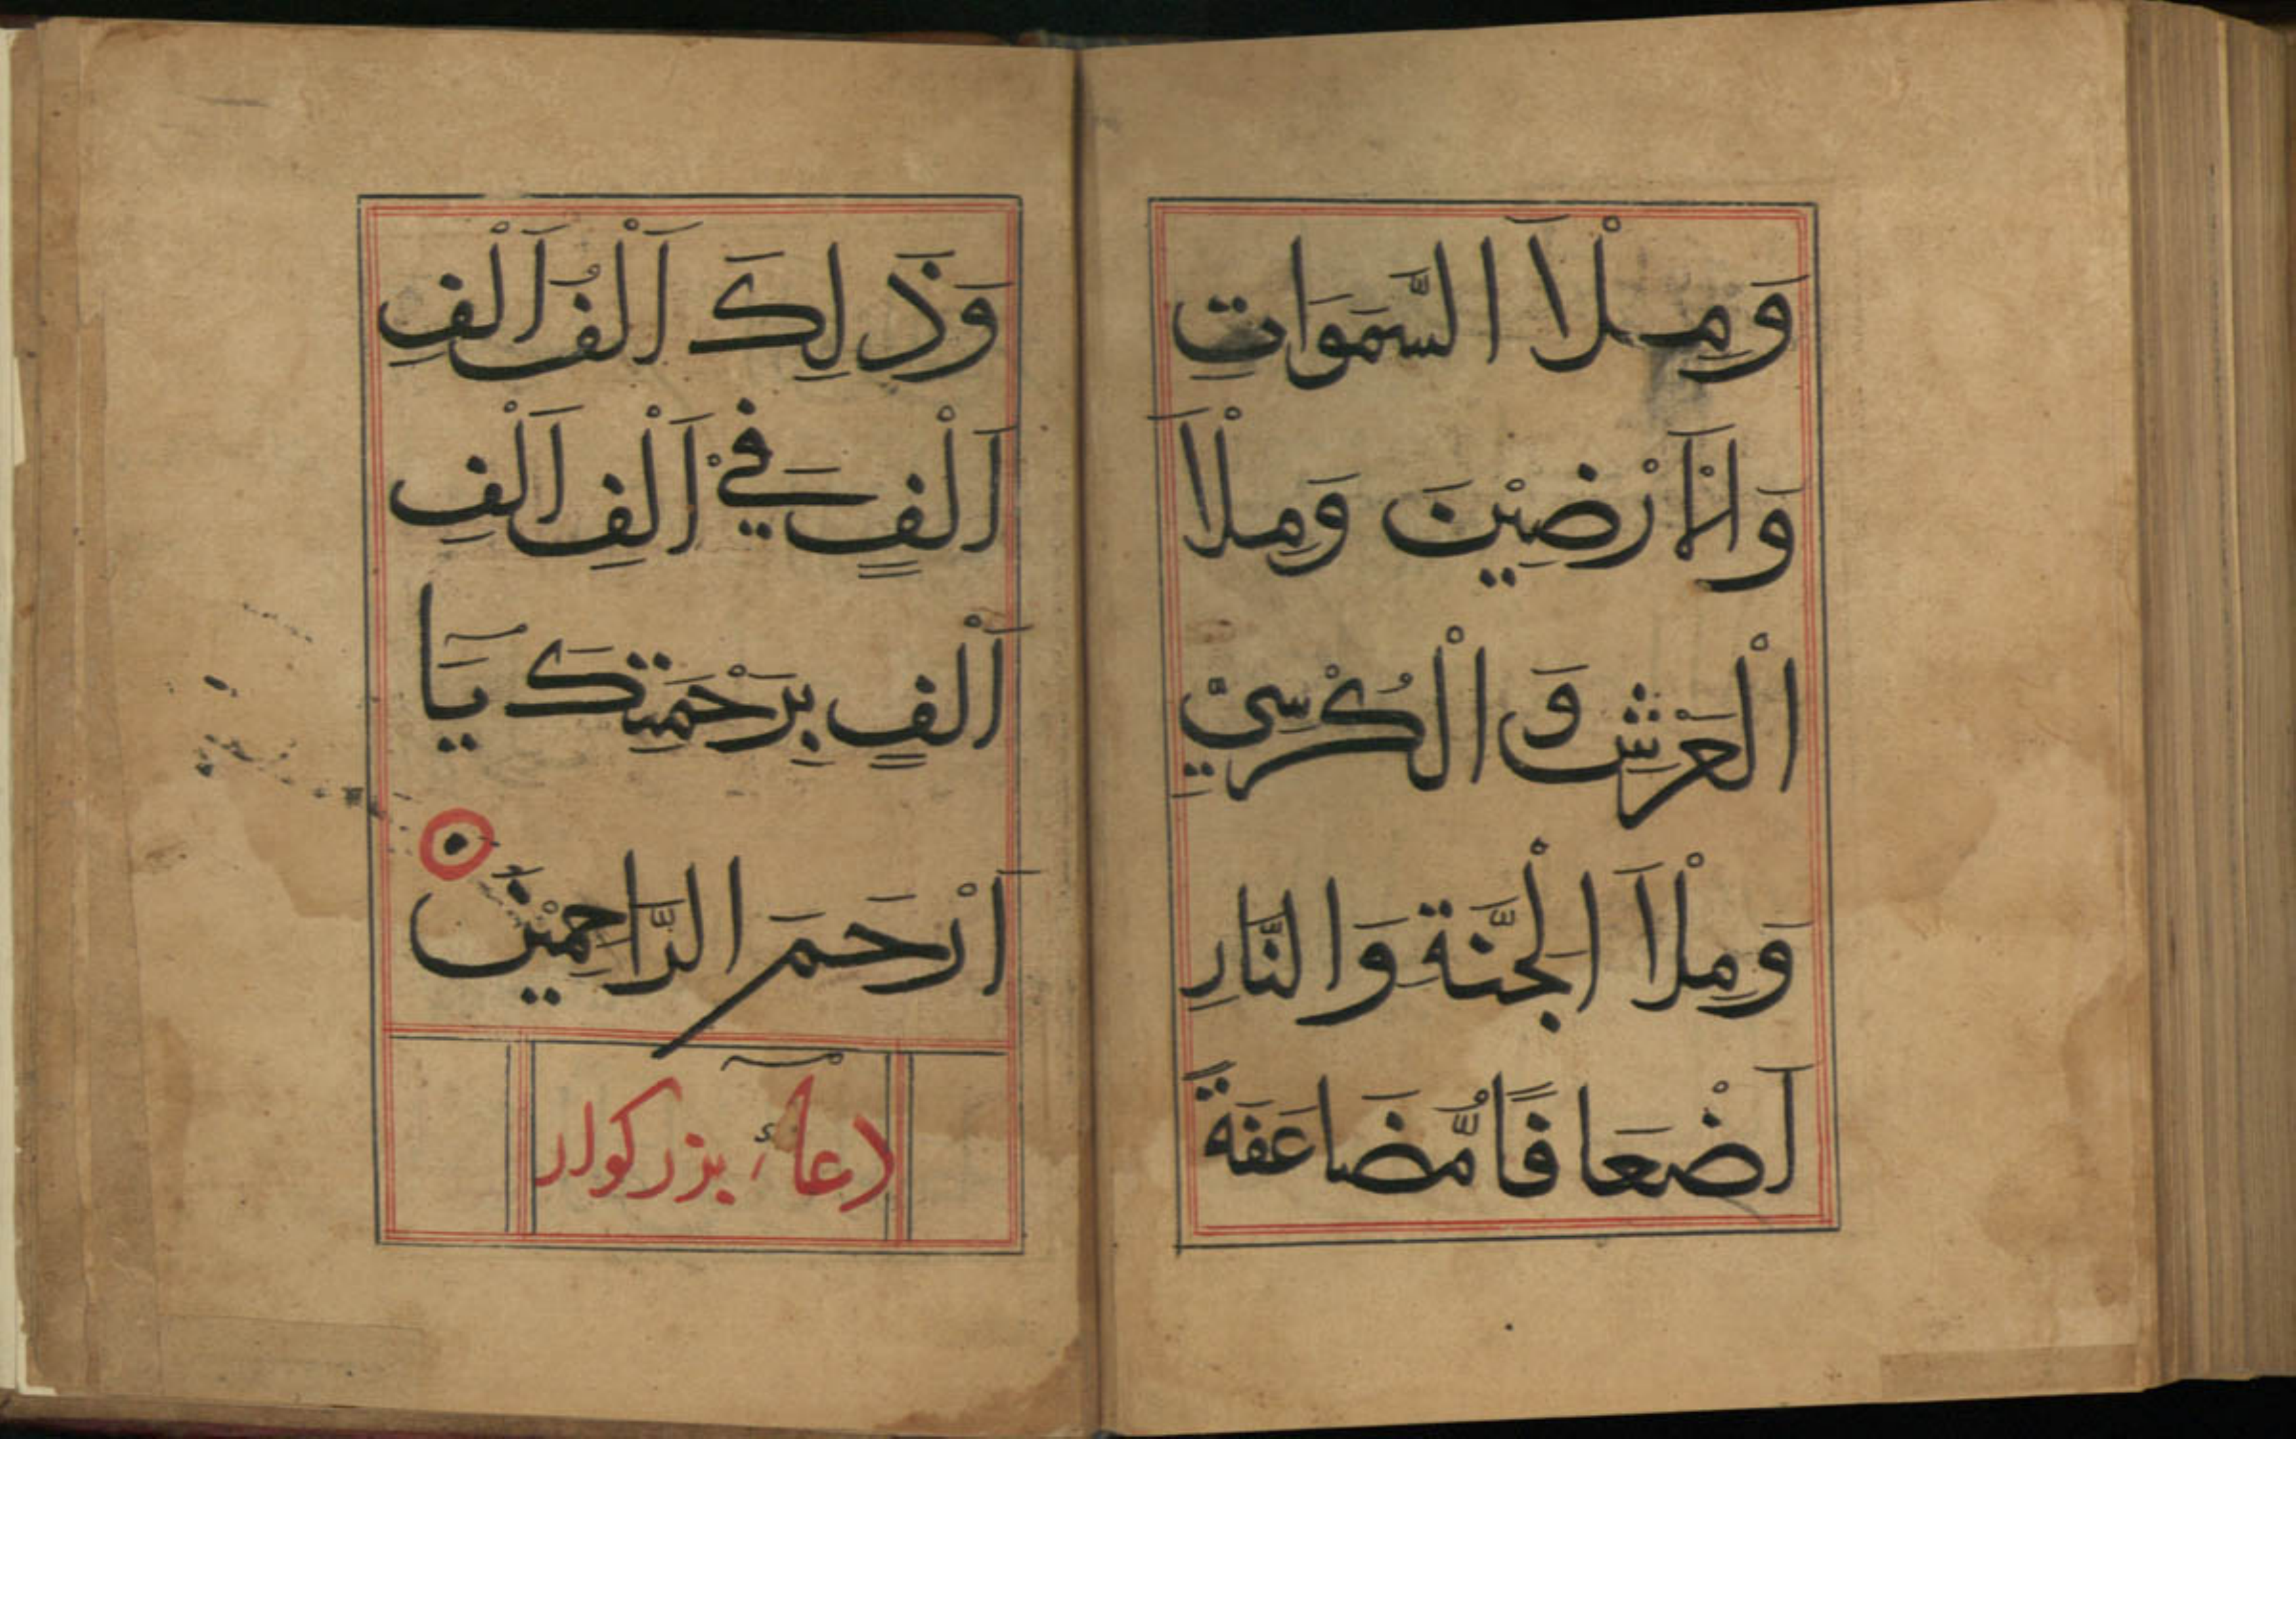 وَمِلْاَ السَّمَوَاتِ
وَلاَْرَْضِيْنَ وَمِلْاَ
الْعَرْشِ وَ الْكُرْسِيِّ
وَمِلْاَ الْجَنَّةِ وَالنَّارِ
اَضْعَافًا مُّضَاعَفَةً
وَذَلِكَ اَلْفُ اَلْفِ
اَلْفٍ فِيْ اَلْفِ اَلْفِ
اَلْفٍ بِرَحْمَتِكَ يَآ
اَرْحَمَ الرَّاحِمِيْنَ
دعآءِ بزركوار